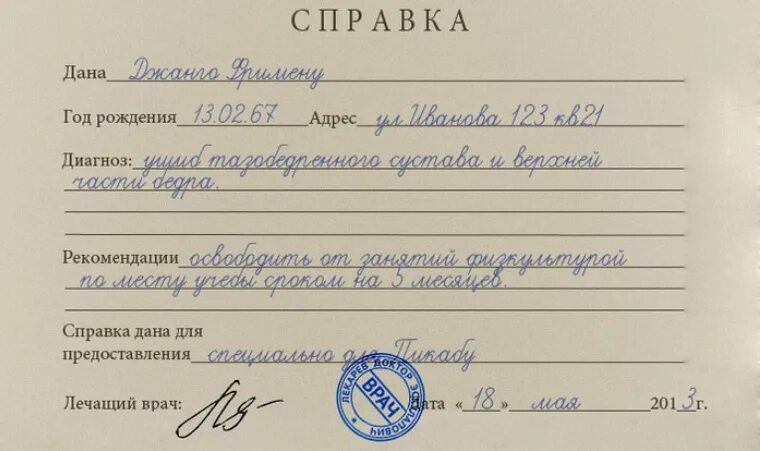 СПРАВКА
Дана Джанго Фримену
Год рождения 13.02.67 Адрес ул Иванова 123 кв 21
Диагноз: ушиб тазобедренного сустава и верхней
части бедра.
Рекомендации освободить от занятий физкультурой
по месту учебы сроком на 5 месяцев.
Справка дана для
предоставления специально для Пикабу
Лечащий врач: Дата «18» мая 2013г.
ЛЕКАРЕВ ДОКТОР ЭСКУЛАПОВИЧ
ВРАЧ